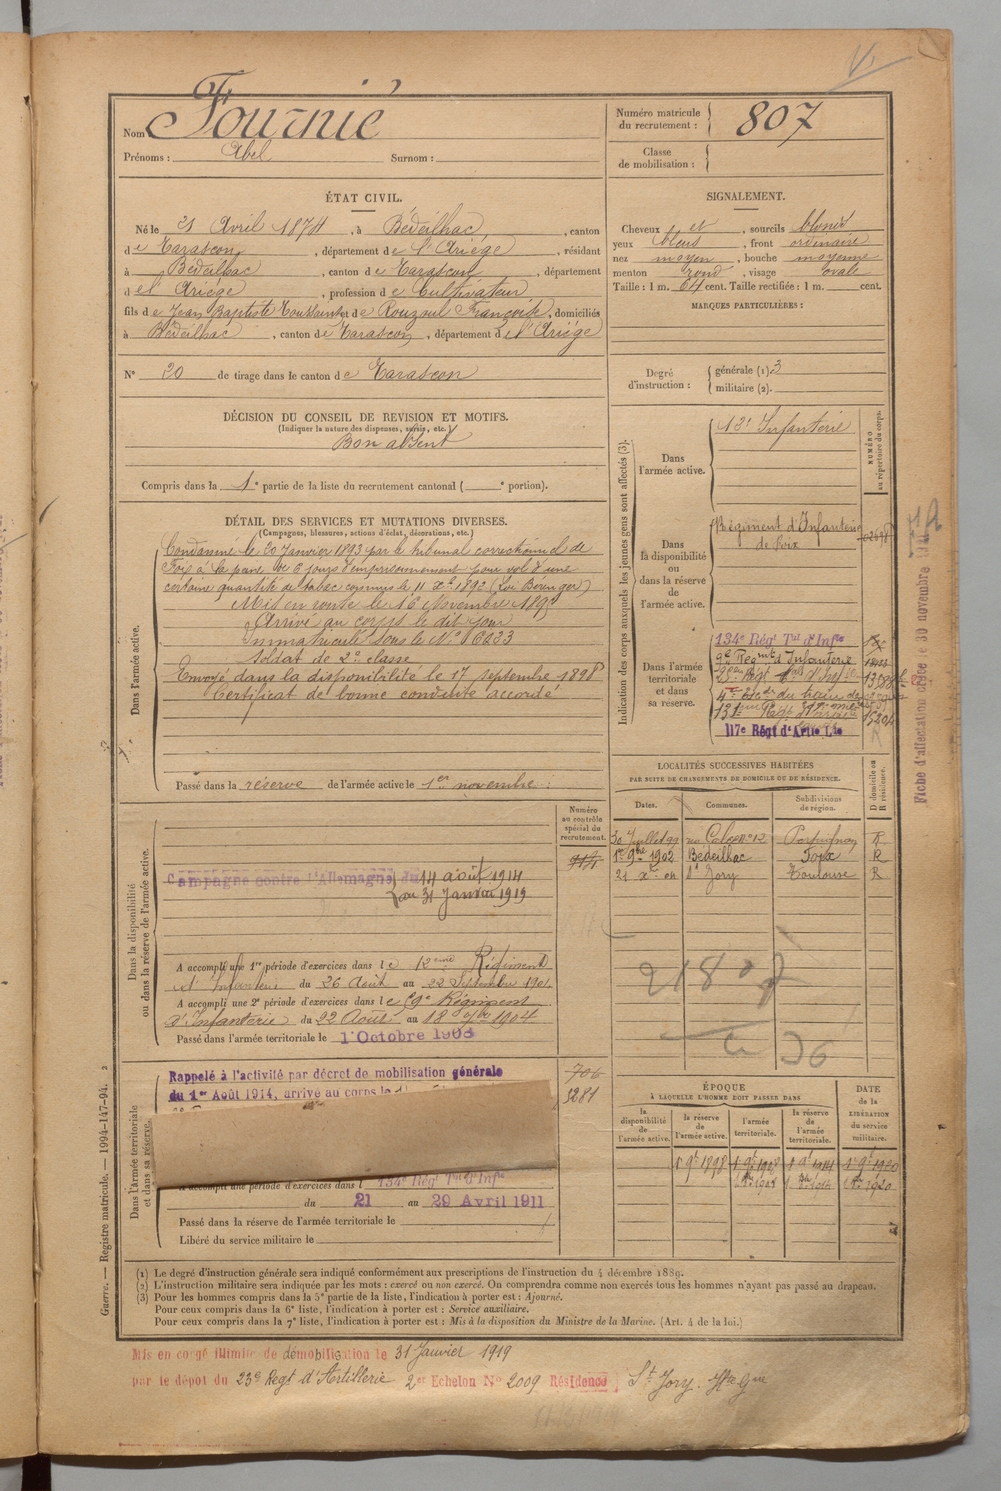 Nom Fournié
Prénoms : Abel Surnom :
Numéro matricule du recrutement : 807
Classe de mobilisation :
ÉTAT CIVIL.
Né le 21 Avril 1874, à Bédeilhac, canton
de Tarascon, département de l'Ariège, résidant
à Bédeilhac, canton de Tarascon, département
de l'Ariège, profession de Cultivateur
fils de Jean Baptiste Toussaint et de Rouzoul Françoise, domiciliés
à Bédeilhac, canton de Tarascon, département de l'Ariège
N° 20 de tirage dans le canton de Tarascon
SIGNALEMENT.
Cheveux et, sourcils blonds
yeux bleus, front ordinaire
nez moyen, bouche moyenne
menton rond, visage ovale
Taille : 1 m. 64 cent. Taille rectifiée : 1 m. cent.
MARQUES PARTICULIÈRES :
Degré d'instruction : générale (1). 3
militaire (2).
DÉCISION DU CONSEIL DE REVISION ET MOTIFS.
(Indiquer la nature des dispenses, sursis, etc.)
Bon absent
Compris dans la 1e partie de la liste du recrutement cantonal ( e portion).
DÉTAIL DES SERVICES ET MUTATIONS DIVERSES.
(Campagnes, blessures, actions d'éclat, décorations, etc.)
Dans l'armée active.
Condamné le 20 Janvier 1893 par le tribunal correctionnel de
Foix à la peine de 6 jours d'emprisonnement pour vol d'une
certaine quantité de tabac commis le 11 Xbre 1892 (Loi Bérenger)
Mis en route le 16 Novembre 1895
Arrivé au corps le dit jour
Immatriculé sous le N° 6933
Soldat de 2e classe
Envoyé dans la disponibilité le 17 septembre 1898
Certificat de bonne conduite accordé
Passé dans la réserve de l'armée active le 1er novembre :
Indication des corps auxquels les jeunes gens sont affectés (3).
NUMÉRO au répertoire du corps.
Dans l'armée active.
12e Infanterie
Dans la disponibilité ou dans la réserve de l'armée active.
Régiment d'Infanterie
de Foix
Dans l'armée territoriale et dans sa réserve.
134e Régt Tal d'Infie
9e Régmt d'Infanterie
117e Régt d'Artie Lde
Fiche d'affectation crisée le 30 novembre
LOCALITÉS SUCCESSIVES HABITÉES
PAR SUITE DE CHANGEMENTS DE DOMICILE OU DE RÉSIDENCE.
Dates. Communes. Subdivisions de région. D domicile ou R résidence.
30 Juillet 99 Perpignan R
1er 9bre 1902 Bédeilhac Foix R
21 St Jory Toulouse R
21807
36
Numéro au contrôle spécial du recrutement.
Dans la disponibilité ou dans la réserve de l'armée active.
Campagne contre l'Allemagne du 14 août 1914
au 31 Janvier 1919
A accompli une 1re période d'exercices dans le 12eme Régiment
d'Infanterie du 26 Août au 22 Septembre 1901
A accompli une 2e période d'exercices dans le 59e Régiment
d'Infanterie du 22 Août au 18 7bre 1904
Passé dans l'armée territoriale le 1 Octobre 1908
Dans l'armée territoriale et dans sa réserve.
Rappelé à l'activité par décret de mobilisation générale
du 1er Août 1914, arrivé au corps le
706
5281
A accompli une période d'exercices dans l 134e Régt Tal d'Infie
du 21 au 29 Avril 1911
Passé dans la réserve de l'armée territoriale le
Libéré du service militaire le
ÉPOQUE
À LAQUELLE L'HOMME DOIT PASSER DANS
la disponibilité de l'armée active. la réserve de l'armée active. l'armée territoriale. la réserve de l'armée territoriale. DATE de la LIBÉRATION du service militaire.
1er 9bre 1898
Guerre. — Registre matricule. — 1994-147-94.
(1) Le degré d'instruction générale sera indiqué conformément aux prescriptions de l'instruction du 4 décembre 1889.
(2) L'instruction militaire sera indiquée par les mots : exercé ou non exercé. On comprendra comme non exercés tous les hommes n'ayant pas passé au drapeau.
(3) Pour les hommes compris dans la 5e partie de la liste, l'indication à porter est : Ajourné.
Pour ceux compris dans la 6e liste, l'indication à porter est : Service auxiliaire.
Pour ceux compris dans la 7e liste, l'indication à porter est : Mis à la disposition du Ministre de la Marine. (Art. 4 de la loi.)
Mis en congé illimité de démobilisation le 31 Janvier 1919
par le dépôt du 23e Regt d'Artillerie 2e Echelon N° 2009 Résidence St Jory. Hte Gne